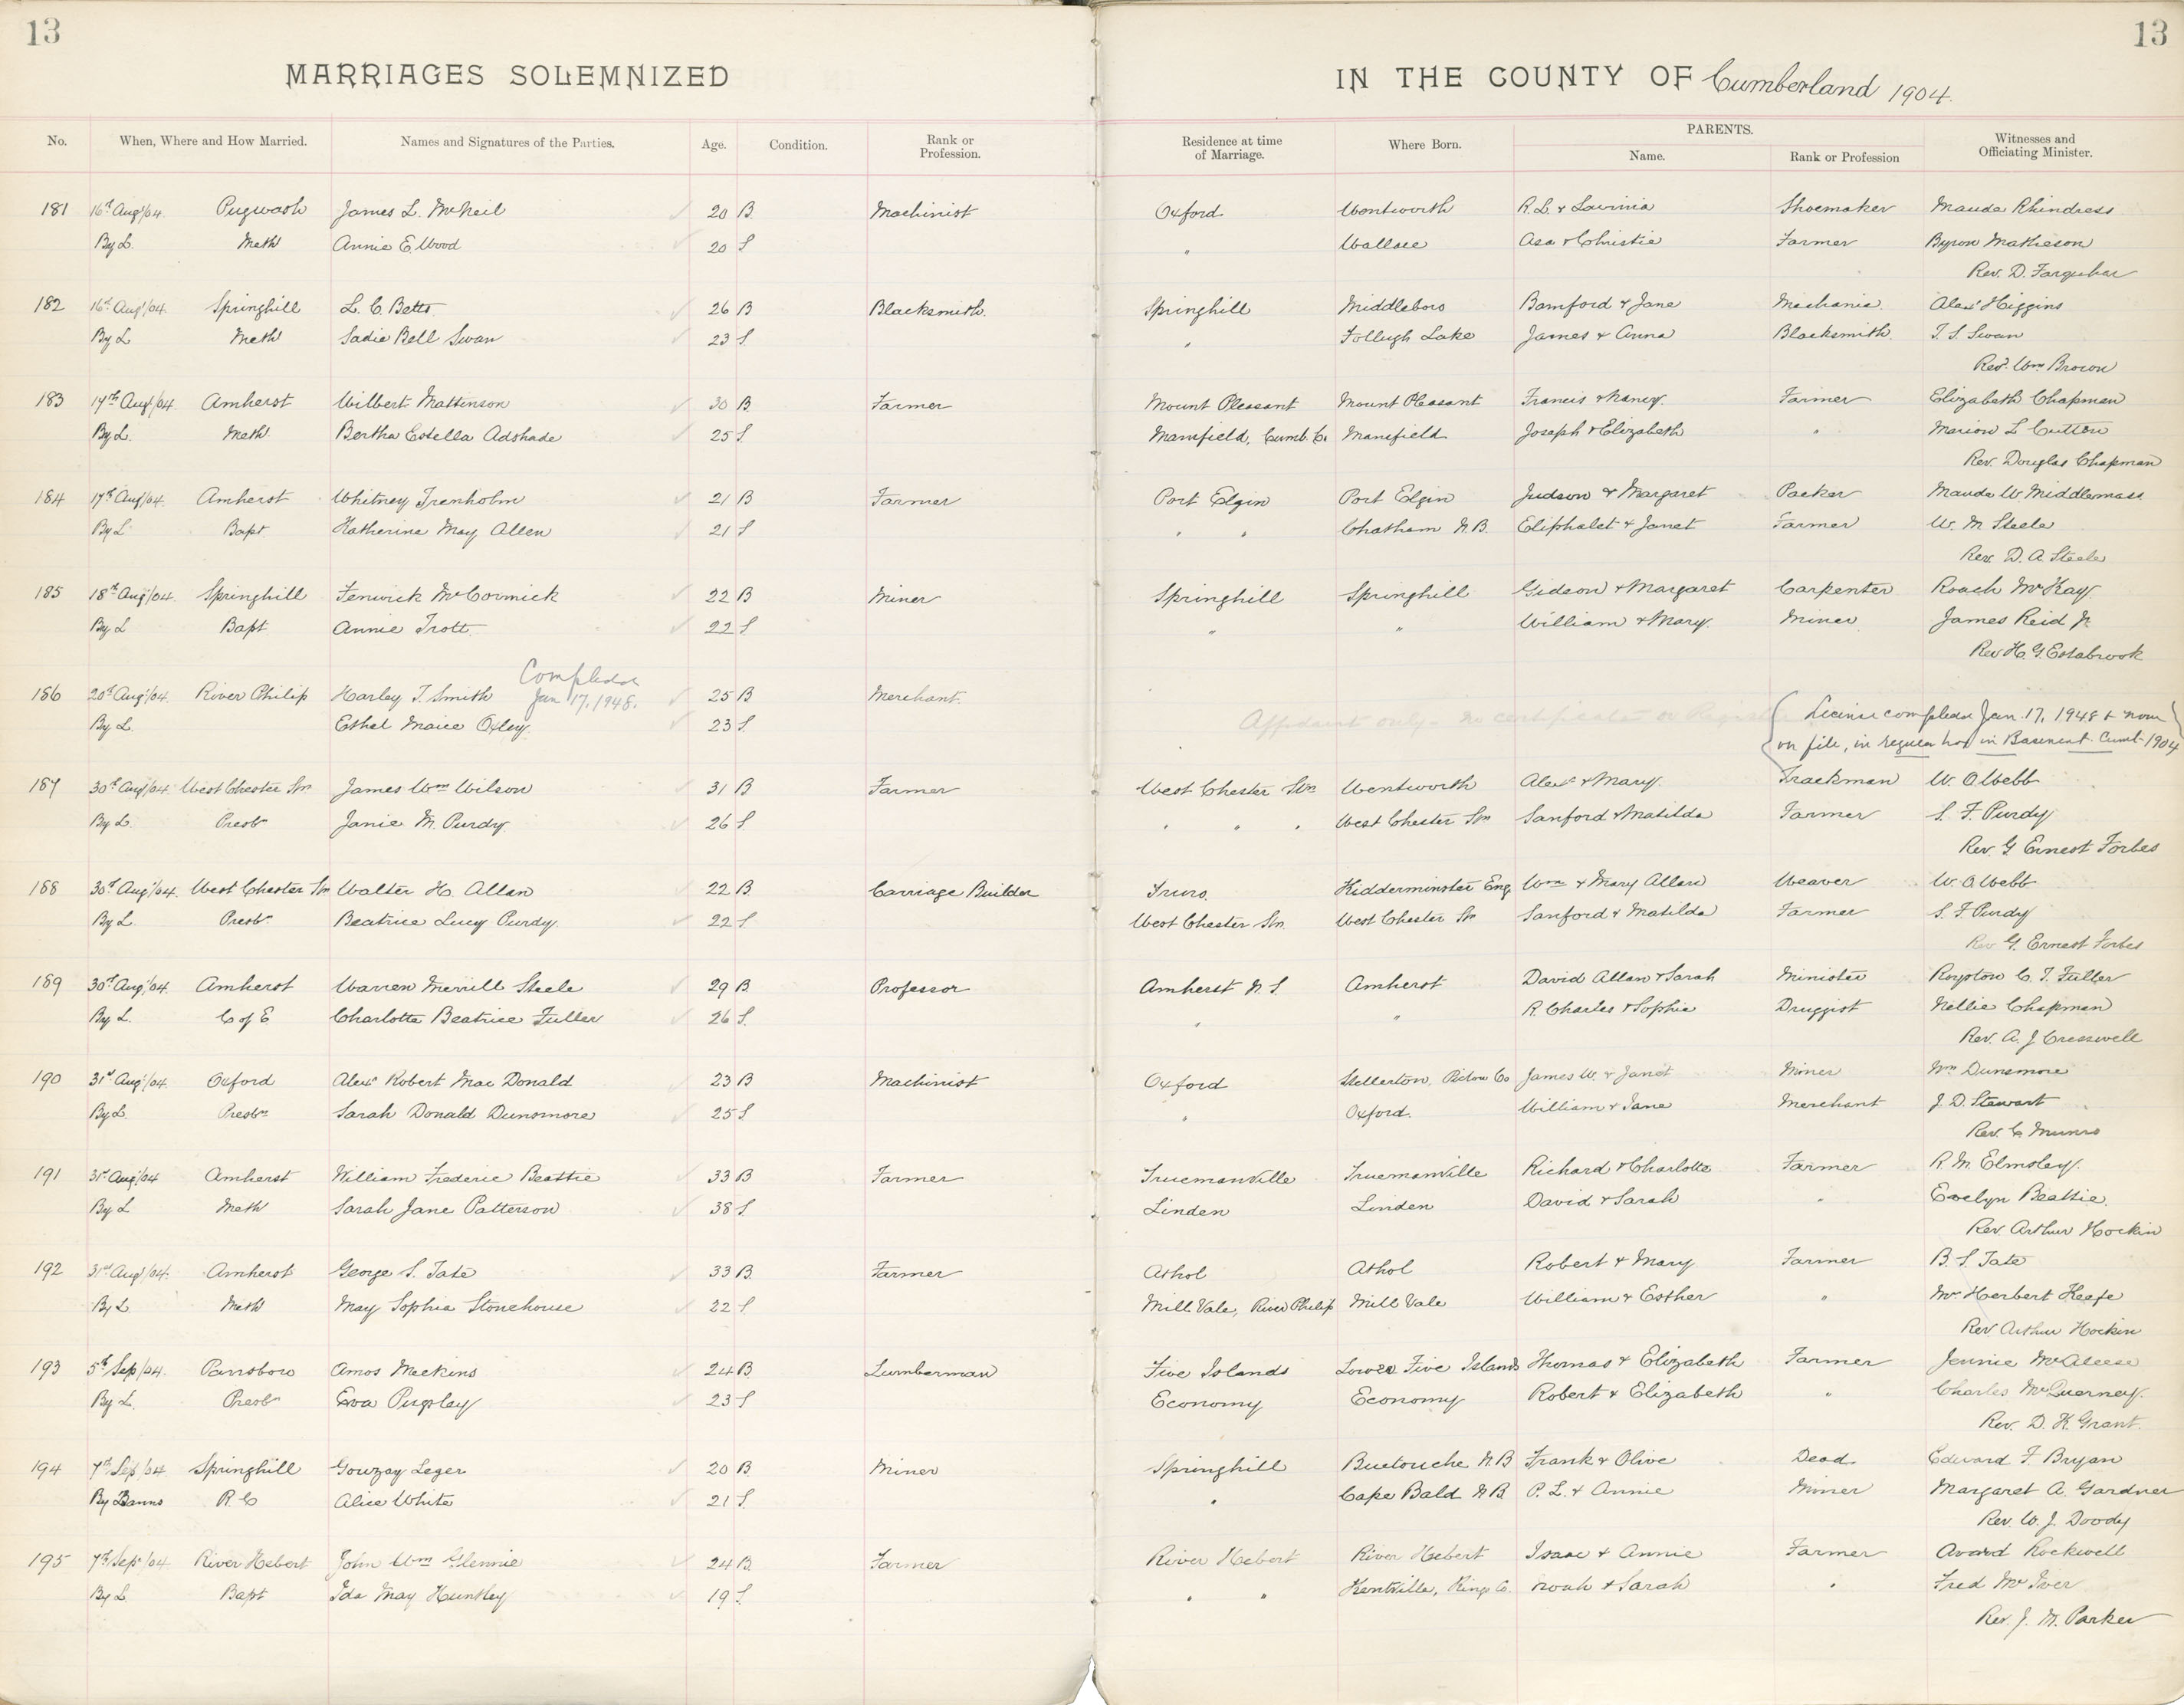 13
13
MARRIAGES SOLEMNIZED
IN THE COUNTY OF Cumberland 1904.
No. When, Where and How Married. Names and Signatures of the Parties. Age. Condition. Rank or Profession. Residence at time of Marriage. Where Born. PARENTS. Name. Rank or Profession Witnesses and Officiating Minister.
181 16th Aug/04. Pugwash James L. McNeil 20 B. Machinist Oxford Wentworth R. L. & Lavinia Shoemaker Maude Rhindress
By L. Meth Annie E. Wood 20 S " Wallace Asa & Christie Farmer Byron Matheson
Rev. D. Farquhar
182 16th Aug/04. Springhill L. C. Betts 26 B Blacksmith. Springhill Middleboro Bamford & Jane Mechanic Alexr Higgins
By L Meth Sadie Bell Swan 23 S. " Folleigh Lake James & Anna Blacksmith. T. S. Swan
Revd. Wm Brown
183 17th Aug/04 Amherst Wilbert Mattinson 30 B. Farmer Mount Pleasant Mount Pleasant Francis & Nancy. Farmer Elizabeth Chapman
By L. Meth. Bertha Estella Adshade 25 S. Mansfield, Cumb. Co. Mansfield Joseph & Elizabeth " Marion L Cutten
Rev. Douglas Chapman
184 17th Aug/04 Amherst Whitney Trenholm 21 B Farmer Port Elgin Port Elgin Judson & Margaret Packer Maude W Middlemass
By L Bapt Katherine May Allen 21 S " " Chatham N.B. Eliphalet & Janet Farmer W. M Steele
Rev. D. A Steele
185 18th Aug/04. Springhill Fenwick McCormick 22 B Miner Springhill Springhill Gideon & Margaret Carpenter Roach McKay
By L Bapt Annie Trott 22 S " " William & Mary. Miner James Reid Jr.
Rev H. G. Estabrook
186 20th Aug/04. River Philip Harley T. Smith Completed Jan 17, 1948. 25 B Merchant.
By L. Ethel Maice Oxley 23 S. Affidavit only - no certificate or Register
License completed Jan. 17, 1948 & now
on file, in regular box in Basement. Cumb. 1904
187 30th Aug/04 West Chester Stn James Wm Wilson 31 B Farmer West Chester Stn Wentworth Alexr & Mary. Trackman W. O Webb
By L. Presbn Janie M. Purdy 26 S. " " " West Chester Stn Sanford & Matilda Farmer S. F. Purdy
Rev. G Ernest Forbes
188 30th Aug/04. West Chester Stn Walter H. Allan 22 B Carriage Builder Truro. Kidderminster Eng. Wm & Mary Allan Weaver W. O Webb
By L. Presbn Beatrice Lucy Purdy. 22 S. West Chester Stn. West Chester Stn Sanford & Matilda Farmer S. F Purdy
Rev G. Ernest Forbes
189 30th Aug/04. Amherst Warren Merrill Steele 29 B. Professor Amherst N. S. Amherst David Allan & Sarah Minister Royston C. T. Fuller
By L. C of E Charlotte Beatrice Fuller 26 S. " " R. Charles & Sophia Druggist Nellie Chapman
Rev. A. J Cresswell
190 31st Aug/04. Oxford Alexr Robert Mac Donald 23 B Machinist Oxford Stellarton, Pictou Co James W. & Janet Miner Wm Dunsmore
By L. Presbn Sarah Donald Dunsmore 25 S. " Oxford. William & Jane Merchant J. D. Stewart
Rev. C. Munro
191 31st Aug/04 Amherst William Frederic Beattie 33 B Farmer Truemanville Truemanville Richard & Charlotte Farmer R. M. Elmsley.
By L Meth Sarah Jane Patterson 38 S. Linden Linden David & Sarah " Evelyn Beattie.
Rev. Arthur Hockin
192 31st Aug/04. Amherst George S. Tate 33 B. Farmer Athol Athol Robert & Mary Farmer B. S. Tate
By L Meth May Sophia Stonehouse 22 S Mill Vale, River Philip Mill Vale William & Esther " Mr Herbert Keefe
Rev Arthur Hockin
193 5th Sep/04. Parrsboro Amos Meekins 24 B. Lumberman Five Islands Lower Five Islands Thomas & Elizabeth Farmer Jennie McAleese
By L. Presbn Eva Pugsley 23 S Economy Economy Robert & Elizabeth " Charles McQuerney.
Rev. D. K. Grant.
194 7th Sep/04. Springhill Gouzay Leger 20 B. Miner Springhill Buctouche N.B Frank & Olive Dead. Edward F. Bryan
By Banns R. C Alice White 21 S. " Cape Bald N B. P. L. & Annie Miner Margaret A. Gardner
Rev. W. J. Doody
195 7th Sep/04. River Hebert John Wm Glennie 24 B. Farmer River Hebert River Hebert Isaac & Annie Farmer Avard Rockwell
By L Bapt Ida May Huntley 19 S. " " Kentville, Kings Co. Noah & Sarah " Fred McIver
Rev. J. M. Parker